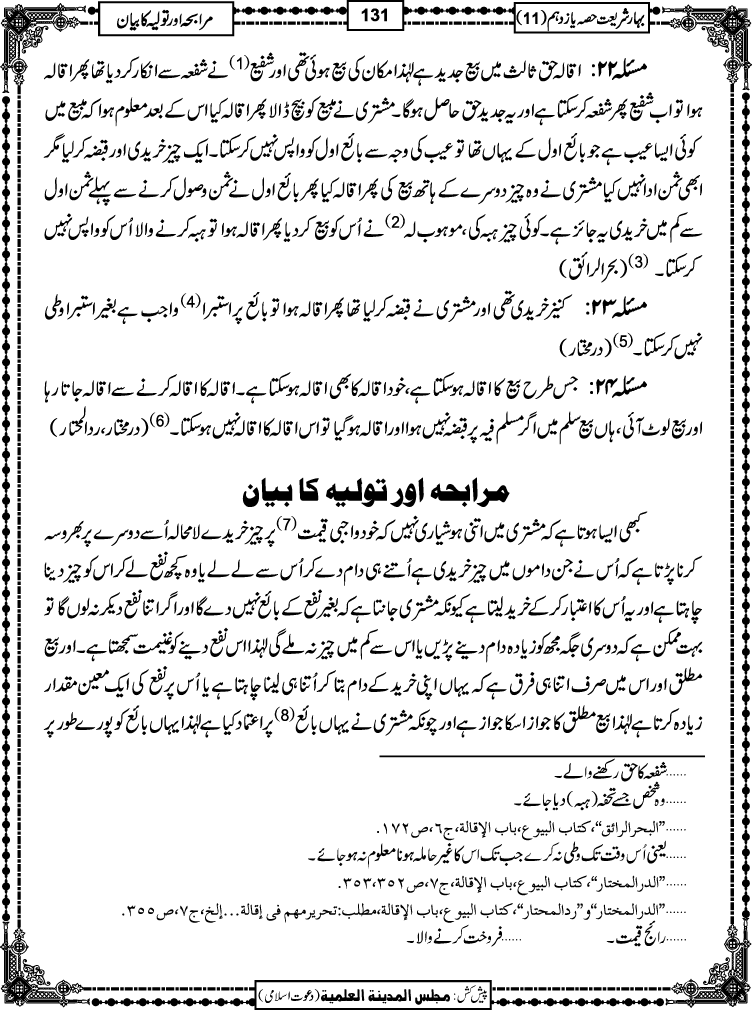 بہار شریعت حصہ یازدہم (11)
131
مرابحہ اور تولیہ کا بیان
مسئلہ ۲۲: اقالہ حق ثالث میں بیع جدید ہے لہٰذا مکان کی بیع ہوئی تھی اور شفیع (1) نے شفعہ سے انکار کر دیا تھا پھر اقالہ
ہوا تو اب شفیع پھر شفعہ کرسکتا ہے اور یہ جدید حق حاصل ہوگا۔ مشتری نے مبیع کو بیچ ڈالا پھر اقالہ کیا اس کے بعد معلوم ہوا کہ مبیع میں
کوئی ایسا عیب ہے جو بائع اول کے یہاں تھا تو عیب کی وجہ سے بائع اول کو واپس نہیں کرسکتا۔ ایک چیز خریدی اور قبضہ کرلیا مگر
ابھی ثمن ادا نہیں کیا مشتری نے وہ چیز دوسرے کے ہاتھ بیع کی پھر اقالہ کیا پھر بائع اول نے ثمن وصول کرنے سے پہلے ثمن اول
سے کم میں خریدی یہ جائز ہے۔ کوئی چیز ہبہ کی، موہوب لہ (2) نے اُس کو بیع کردیا پھر اقالہ ہوا تو ہبہ کرنے والا اُس کو واپس نہیں
کرسکتا۔ (3) (بحرالرائق)
مسئلہ ۲۳: کنیز خریدی تھی اور مشتری نے قبضہ کرلیا تھا پھر اقالہ ہوا تو بائع پر استبرا (4) واجب ہے بغیر استبرا وطی
نہیں کرسکتا۔ (5) (درمختار)
مسئلہ ۲۴: جس طرح بیع کا اقالہ ہوسکتا ہے، خود اقالہ کا بھی اقالہ ہوسکتا ہے۔ اقالہ کا اقالہ کرنے سے اقالہ جاتا رہا
اور بیع لوٹ آئی، ہاں بیع سلم میں اگر مسلم فیہ پر قبضہ نہیں ہوا اور اقالہ ہوگیا تو اس اقالہ کا اقالہ نہیں ہوسکتا۔ (6) (درمختار، ردالمحتار)
مرابحہ اور تولیہ کا بیان
کبھی ایسا ہوتا ہے کہ مشتری میں اتنی ہوشیاری نہیں کہ خود واجبی قیمت (7) پر چیز خریدے لامحالہ اُسے دوسرے پر بھروسہ
کرنا پڑتا ہے کہ اُس نے جن داموں میں چیز خریدی ہے اُتنے ہی دام دے کر اُس سے لے لے یا وہ کچھ نفع لے کر اس کو چیز دینا
چاہتا ہے اور یہ اُس کا اعتبار کرکے خرید لیتا ہے کیونکہ مشتری جانتا ہے کہ بغیر نفع کے بائع نہیں دے گا اور اگر اتنا نفع دیکر نہ لوں گا تو
بہت ممکن ہے کہ دوسری جگہ مجھ کو زیادہ دام دینے پڑیں یا اس سے کم میں چیز نہ ملے گی لہٰذا اس نفع دینے کو غنیمت سمجھتا ہے۔ اور بیع
مطلق اور اس میں صرف اتنا ہی فرق ہے کہ یہاں اپنی خرید کے دام بتا کر اُتنا ہی لینا چاہتا ہے یا اُس پر نفع کی ایک معین مقدار
زیادہ کرتا ہے لہٰذا بیع مطلق کا جواز اسکا جواز ہے اور چونکہ مشتری نے یہاں بائع (8) پر اعتماد کیا ہے لہٰذا یہاں بائع کو پورے طور پر
......شفعہ کا حق رکھنے والے۔
......وہ شخص جسے تحفہ (ہبہ) دیا جائے۔
......"البحرالرائق"، كتاب البيوع،باب الإقالة،ج٦،ص١٧٢.
......یعنی اُس وقت تک وطی نہ کرے جب تک اس کا غیر حاملہ ہونا معلوم نہ ہو جائے۔
......"الدرالمختار"، كتاب البيوع،باب الإقالة،ج٧،ص٣٥٢،٣٥٣.
......"الدرالمختار"و"ردالمحتار"، كتاب البيوع،باب الإقالة،مطلب:تحريرمهم فى إقالة...إلخ،ج٧،ص٣٥٥.
......رائج قیمت۔ ......فروخت کرنے والا۔
پیش کش: مجلس المدينة العلمية (دعوت اسلامی)